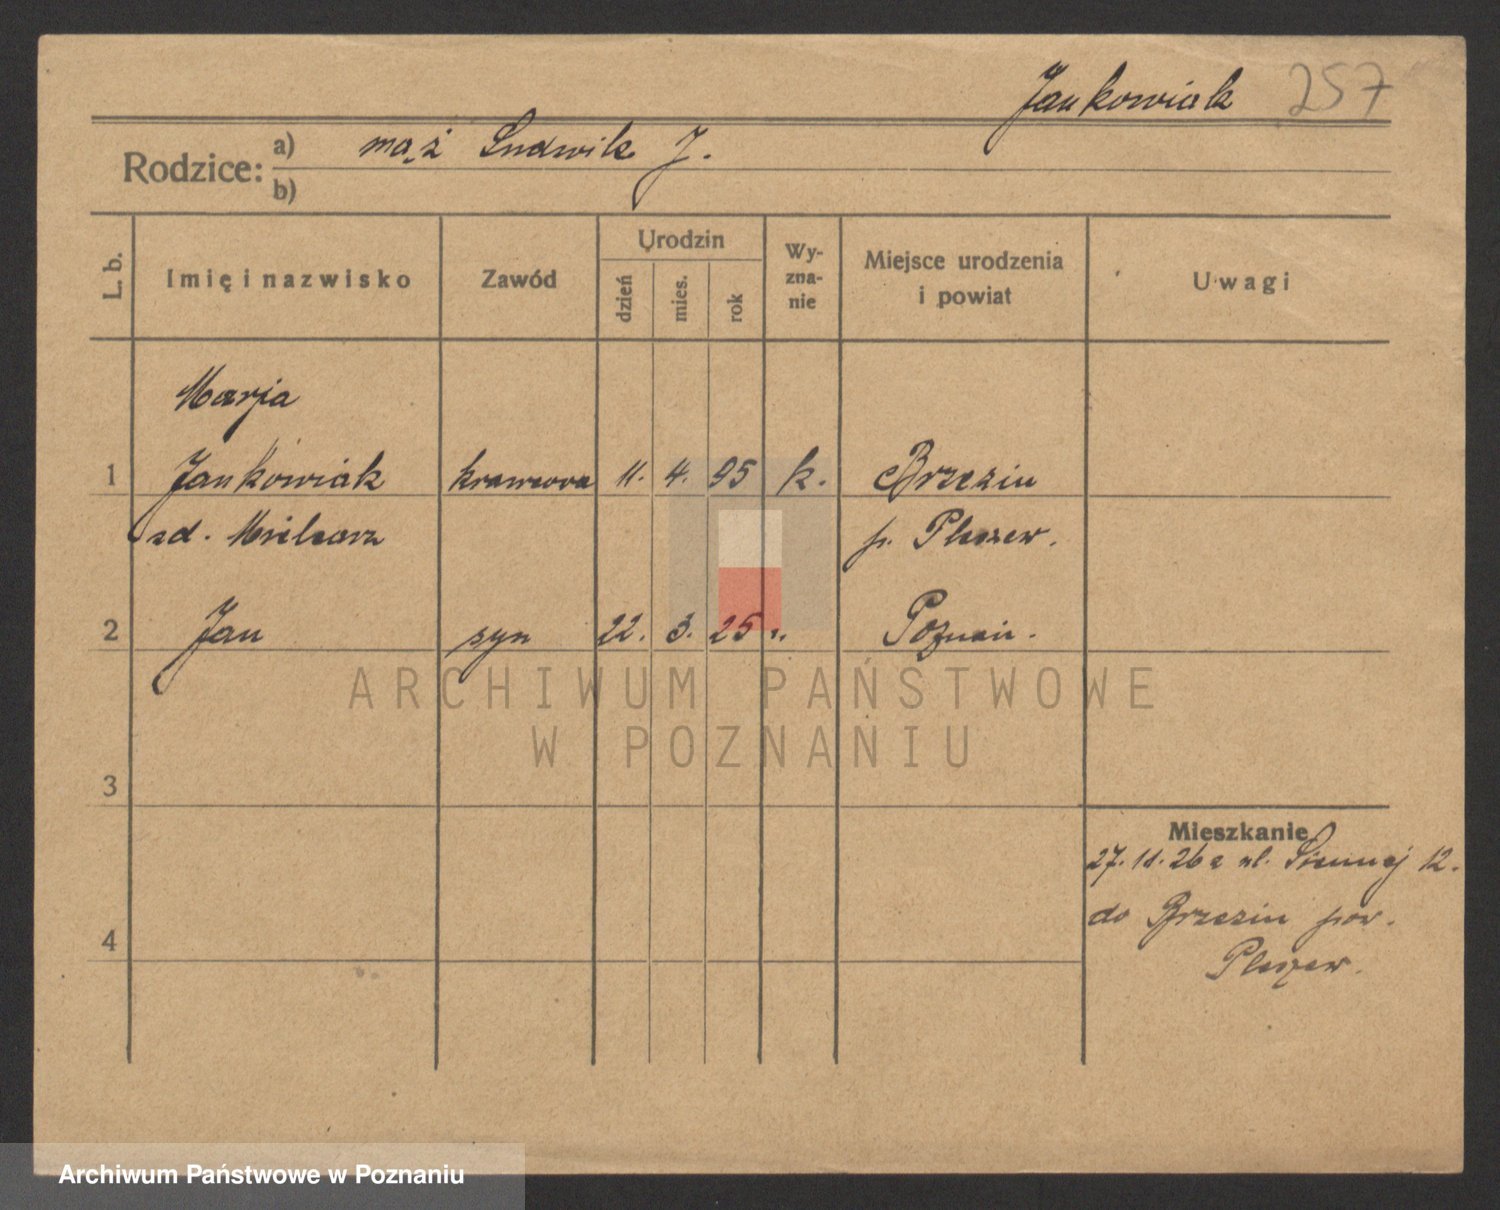 Jankowiak 257
Rodzice: a) mąż Ludwik J.
b)
L. b.
Imię i nazwisko
Zawód
Urodzin
dzień
mies.
rok
Wy-
zna-
nie
Miejsce urodzenia
i powiat
Uwagi
Marja
1 Jankowiak krawcowa 11. 4. 95 k. Brzezin
zd. Mielcarz p. Pleszew.
2 Jan syn 22. 3. 25 Poznań.
ARCHIWUM PAŃSTWOWE
W POZNANIU
3
Mieszkanie
27. 11. 26 z ul. Siennej 12.
do Brzezin pow.
4
Pleszew.
Archiwum Państwowe w Poznaniu